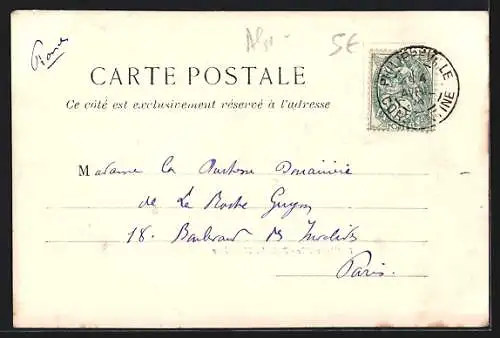 France
5€
PHILIPPEVILLE
CONSTANTINE
CARTE POSTALE
Ce côté est exclusivement réservé à l'adresse
Madame la Duchesse Douairière
de La Roche Guyon
18. Boulevard des Invalides
Paris.